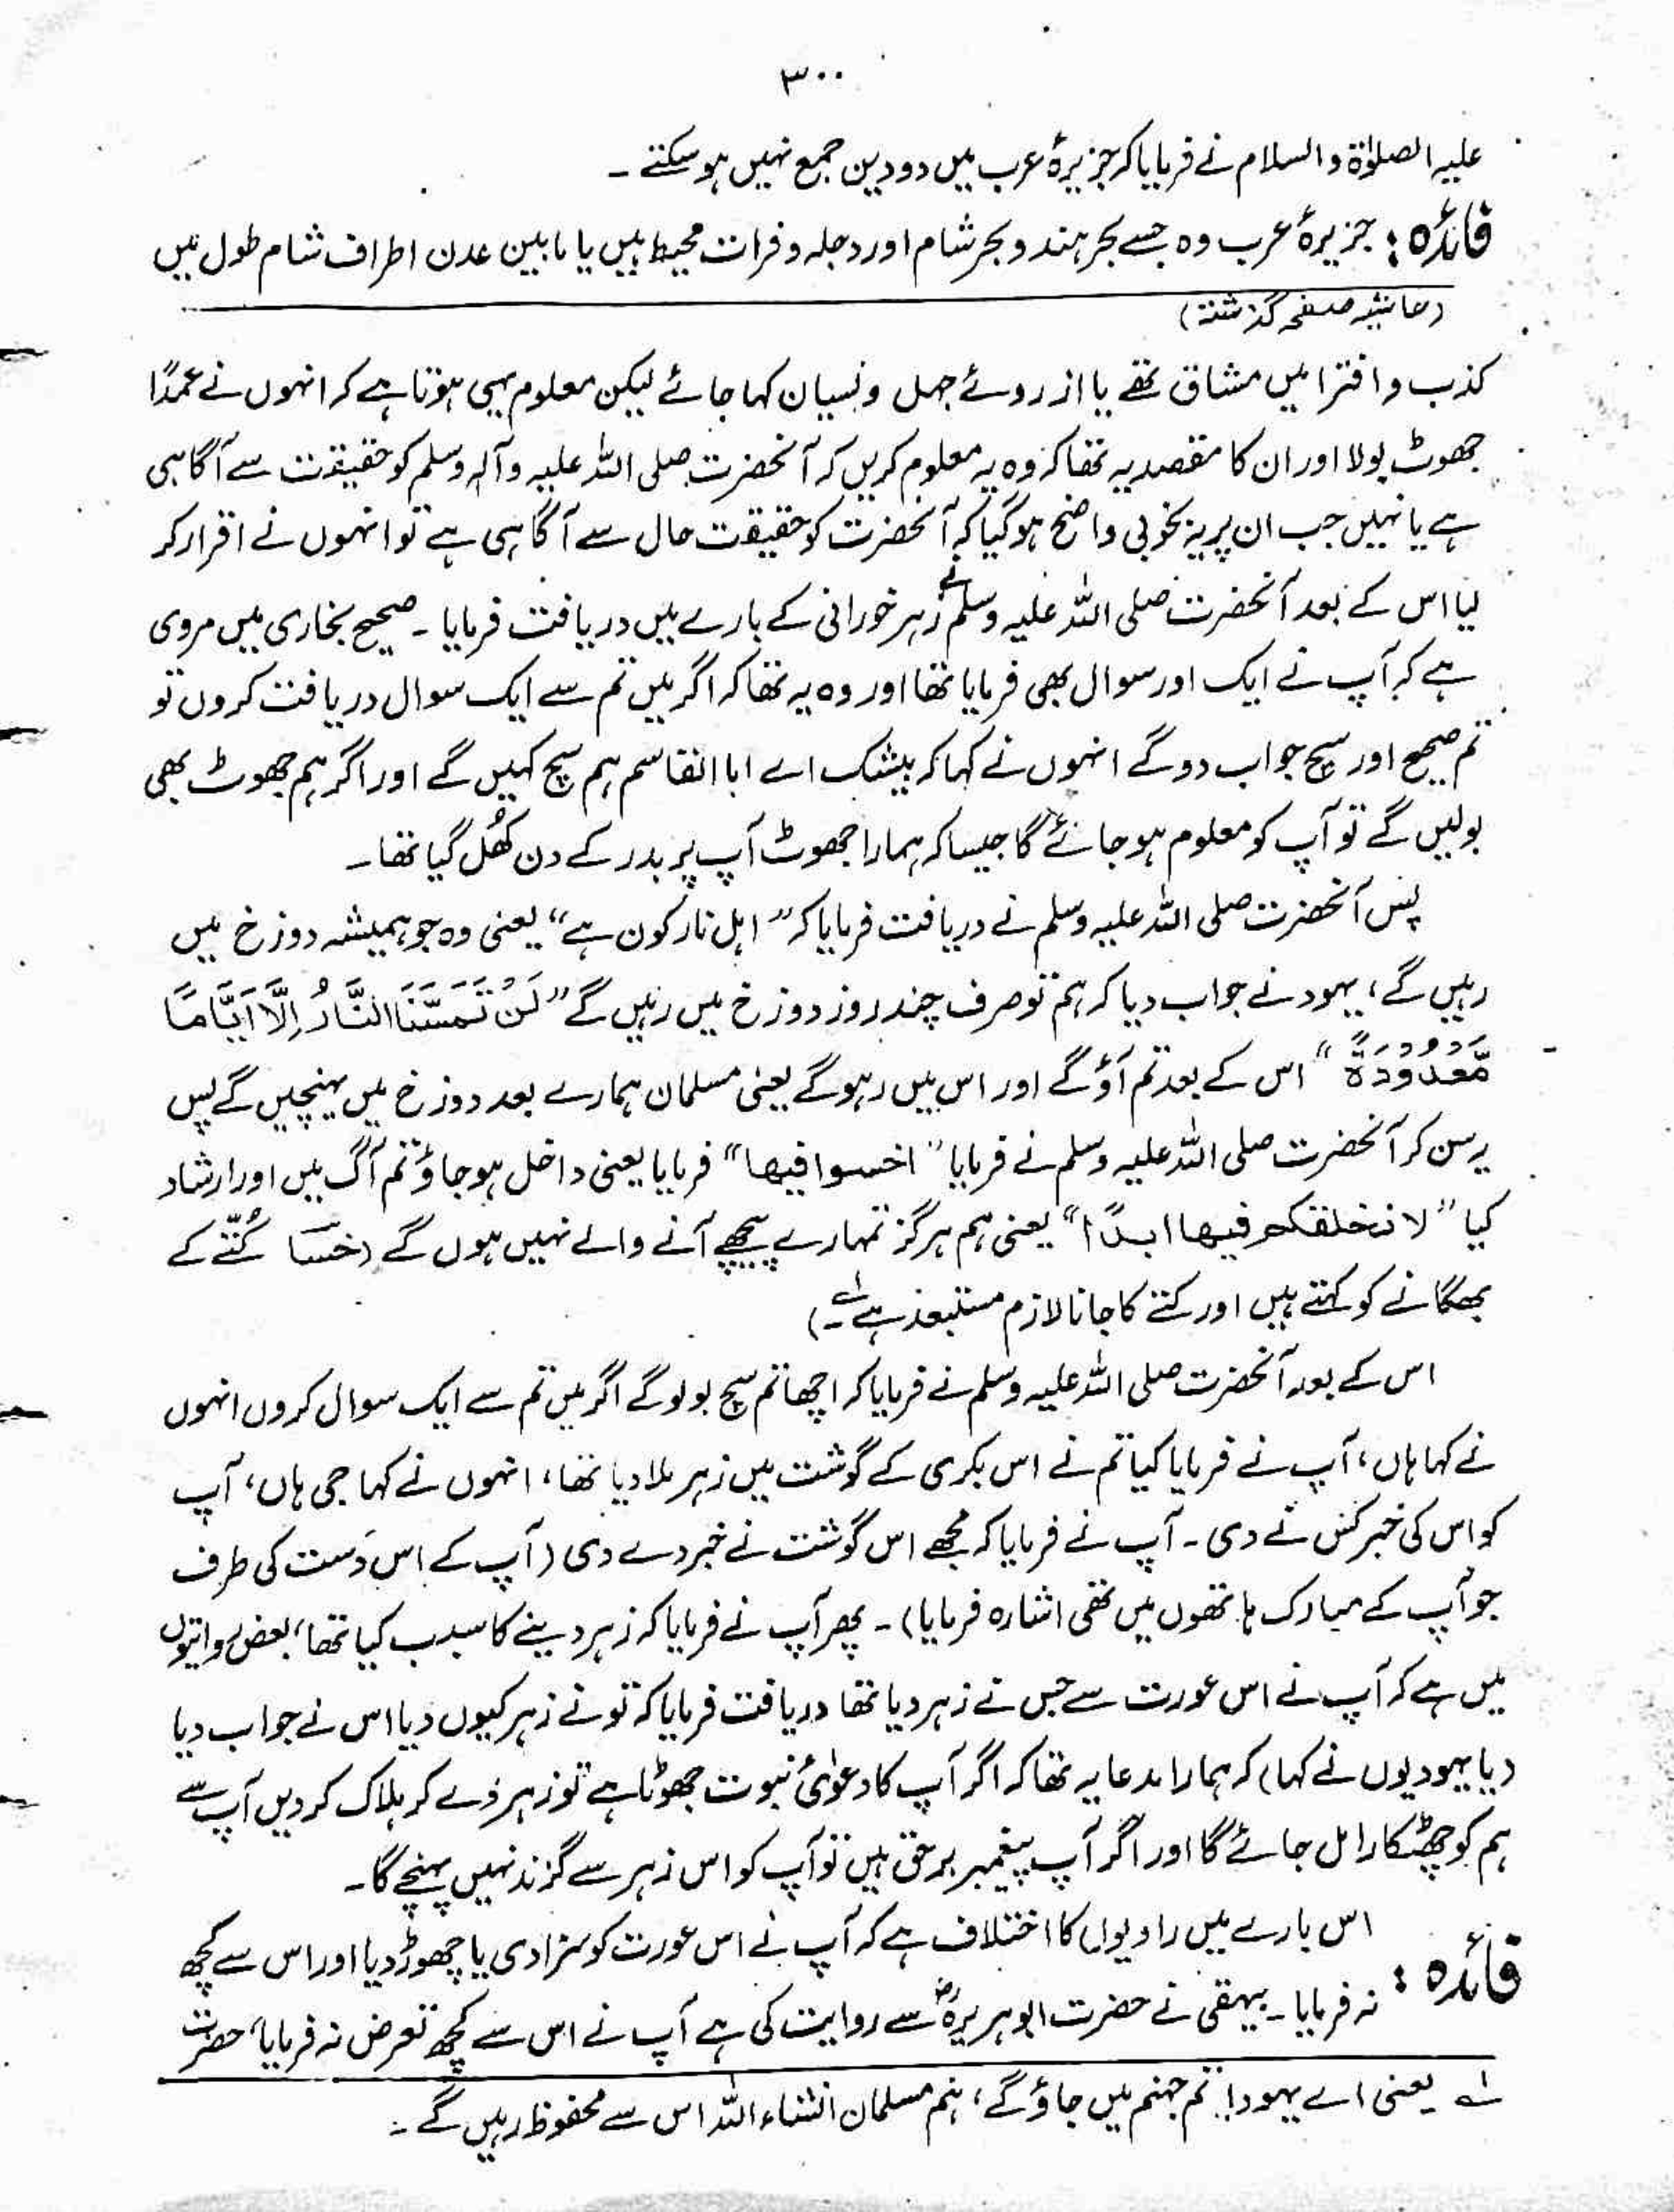 ۳۰۰
علیہ الصلوٰۃ والسلام نے فرمایا کہ جزیرۂ عرب میں دو دین جمع نہیں ہو سکتے ۔
فائدہ : جزیرۂ عرب وہ جسے بحر ہند و بحر شام اور دجلہ و فرات محیط ہیں یا مابین عدن اطراف شام طول میں
(حاشیہ صفحہ گذشتہ)
کذب و افترا میں مشاق تھے یا از روئے جہل و نسیان کہا جائے لیکن معلوم یہی ہوتا ہے کہ انہوں نے عمدًا
جھوٹ بولا اور ان کا مقصد یہ تھا کہ وہ یہ معلوم کریں کہ آنحضرت صلی اللہ علیہ وآلہ وسلم کو حقیقت سے آگاہی
ہے یا نہیں جب ان پر یہ بخوبی واضح ہو گیا کہ آنحضرت کو حقیقت حال سے آگاہی ہے تو انہوں نے اقرار کر
لیا اس کے بعد آنحضرت صلی اللہ علیہ وسلم نے زہر خورانی کے بارے میں دریافت فرمایا ۔ صحیح بخاری میں مروی
ہے کہ آپ نے ایک اور سوال بھی فرمایا تھا اور وہ یہ تھا کہ اگر میں تم سے ایک سوال دریافت کروں تو
تم صحیح اور سچ جواب دو گے انہوں نے کہا کہ بیشک اے ابا القاسم ہم سچ کہیں گے اور اگر ہم جھوٹ بھی
بولیں گے تو آپ کو معلوم ہو جائے گا جیسا کہ ہمارا جھوٹ آپ پر بدر کے دن کھُل گیا تھا ۔
پس آنحضرت صلی اللہ علیہ وسلم نے دریافت فرمایا کہ ”اہل نار کون ہے“ یعنی وہ جو ہمیشہ دوزخ میں
رہیں گے، یہود نے جواب دیا کہ ہم تو صرف چند روز دوزخ میں رہیں گے ”لَنْ تَمَسَّنَا النَّارُ اِلَّا اَيَّامًا
مَّعْدُوْدَةً“ اس کے بعد تم آؤ گے اور اس میں رہو گے یعنی مسلمان ہمارے بعد دوزخ میں پہنچیں گے پس
یہ سن کر آنحضرت صلی اللہ علیہ وسلم نے فرمایا ”اخسوا فیھا“ فرمایا یعنی داخل ہو جاؤ تم آگ میں اور ارشاد
کیا ”لا نخلفکم فیھا ابدًا“ یعنی ہم ہرگز تمہارے پیچھے آنے والے نہیں ہوں گے (خسَا کُتّے کے
بھگانے کو کہتے ہیں اور کتے کا جانا لازم مستبعد ہے ؂۱)
اس کے بعد آنحضرت صلی اللہ علیہ وسلم نے فرمایا کہ اچھا تم سچ بولو گے اگر میں تم سے ایک سوال کروں انہوں
نے کہا ہاں، آپ نے فرمایا کیا تم نے اس بکری کے گوشت میں زہر ملا دیا تھا، انہوں نے کہا جی ہاں، آپ
کو اس کی خبر کس نے دی ۔ آپ نے فرمایا کہ مجھے اس گوشت نے خبر دے دی (آپ کے اس دَست کی طرف
جو آپ کے مبارک ہاتھوں میں تھی اشارہ فرمایا) ۔ پھر آپ نے فرمایا کہ زہر دینے کا سبب کیا تھا، بعض روایتوں
میں ہے کہ آپ نے اس عورت سے جس نے زہر دیا تھا دریافت فرمایا کہ تو نے زہر کیوں دیا اس نے جواب دیا
(یا یہودیوں نے کہا) کہ ہمارا مدعا یہ تھا کہ اگر آپ کا دعوٰئ نبوت جھوٹا ہے تو زہر دے کر ہلاک کر دیں آپ سے
ہم کو چھٹکارا مل جائے گا اور اگر آپ پیغمبر برحق ہیں تو آپ کو اس زہر سے گزند نہیں پہنچے گا ۔
فائدہ : اس بارے میں راویوں کا اختلاف ہے کہ آپ نے اس عورت کو سزا دی یا چھوڑ دیا اور اس سے کچھ
نہ فرمایا ۔ بیہقی نے حضرت ابوہریرہؓ سے روایت کی ہے آپ نے اس سے کچھ تعرض نہ فرمایا، حضرت
؂۱ یعنی اے یہود! تم جہنم میں جاؤ گے، ہم مسلمان انشاء اللہ اس سے محفوظ رہیں گے ۔